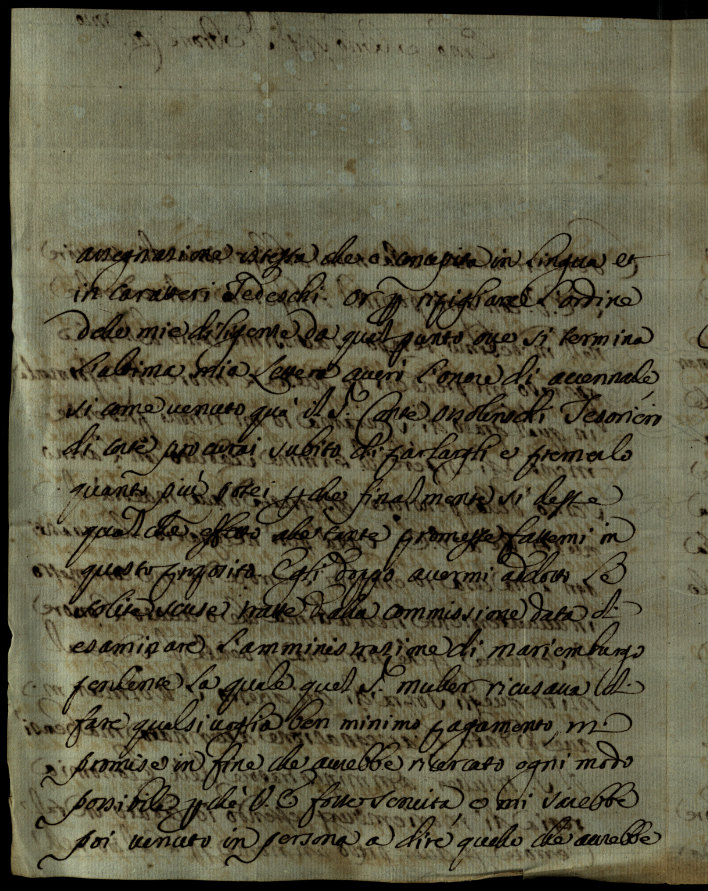 assegnazione istessa che è concepita in Lingua et
in Caratteri Tedeschi. Or p ripigliare l'ordine
delle mie diligenze da quel punto ove si termina
l'altima mia Lettera averi l'onore di accennale
si come venuto quà il S.r Conte Ossolinschi Tesoriero
di corte procurai subito di parlargli e premerlo
quanto più potei pche finalmente si desse
qualche effetto alle tante promesse fattemi in
questo proposito. Egli doppo avermi addotto Le
solite scuse tratte dalla commissione data di
esaminare l'amministrazione di mariemburgo
pendente La quale quel S.r muber ricusava di
fare qualsivoglia ben minimo pagamento, mi
promise in fine che avrebbe ricercato ogni modo
possibile pchè V. E fosse servita, e mi sarebbe
poi venuto in persona a dire quello che avrebbe